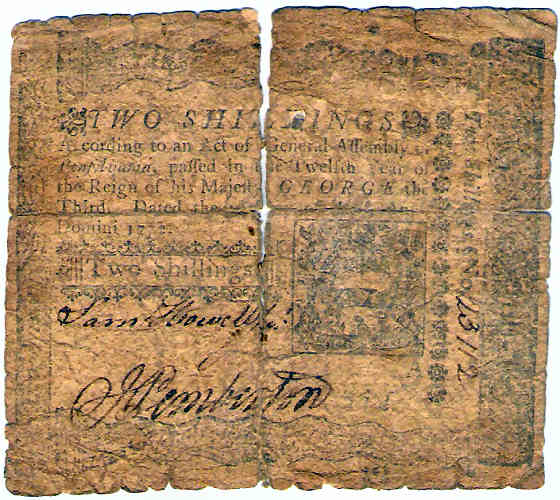 TWO SHILLINGS
According to an Act of General Assembly of
Pensylvania, passed in the Twelfth Year of
the Reign of his Majesty GEORGE the
Third. Dated the
Domini 1772.
Two Shillings
Sam Howell
J Pemberton
Two Shillings. No.
13112